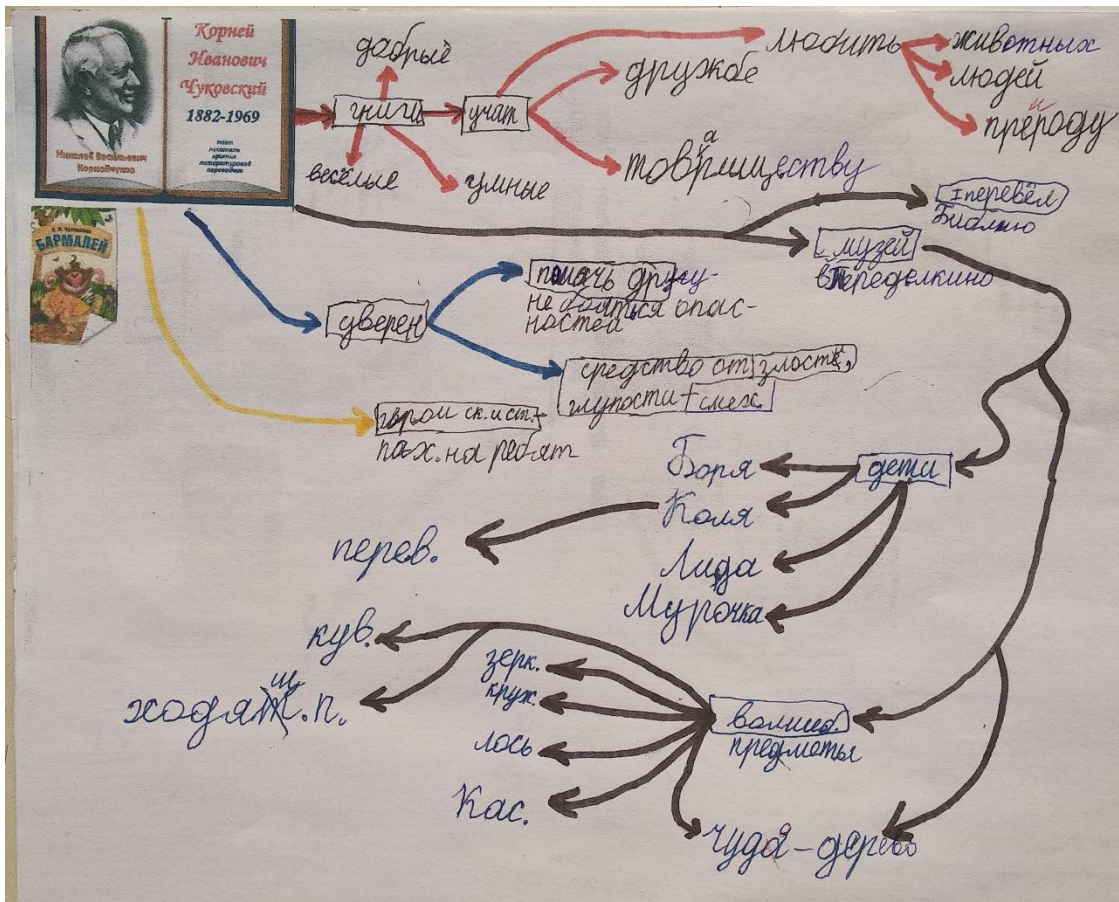 Корней
Иванович
Чуковский
1882-1969
поэт
писатель
критик
литературовед
переводчик
Николай Васильевич
Корнейчуков
К. И. Чуковский
БАРМАЛЕЙ
добрые
книги
учат
весёлые
умные
любить
дружбе
товариществу
животных
людей
природу
перевёл
Библию
музей
в Переделкино
уверен
помочь другу
не бояться опас-
ностей
средство от злости,
глупости - смех.
герои ск. и ст. -
пох. на ребят
дети
Боря
Коля
Лида
Мурочка
перев.
кув.
ходящ. п.
зерк.
круж.
лось
Кас.
волшеб.
предмоты
чудо - дерево